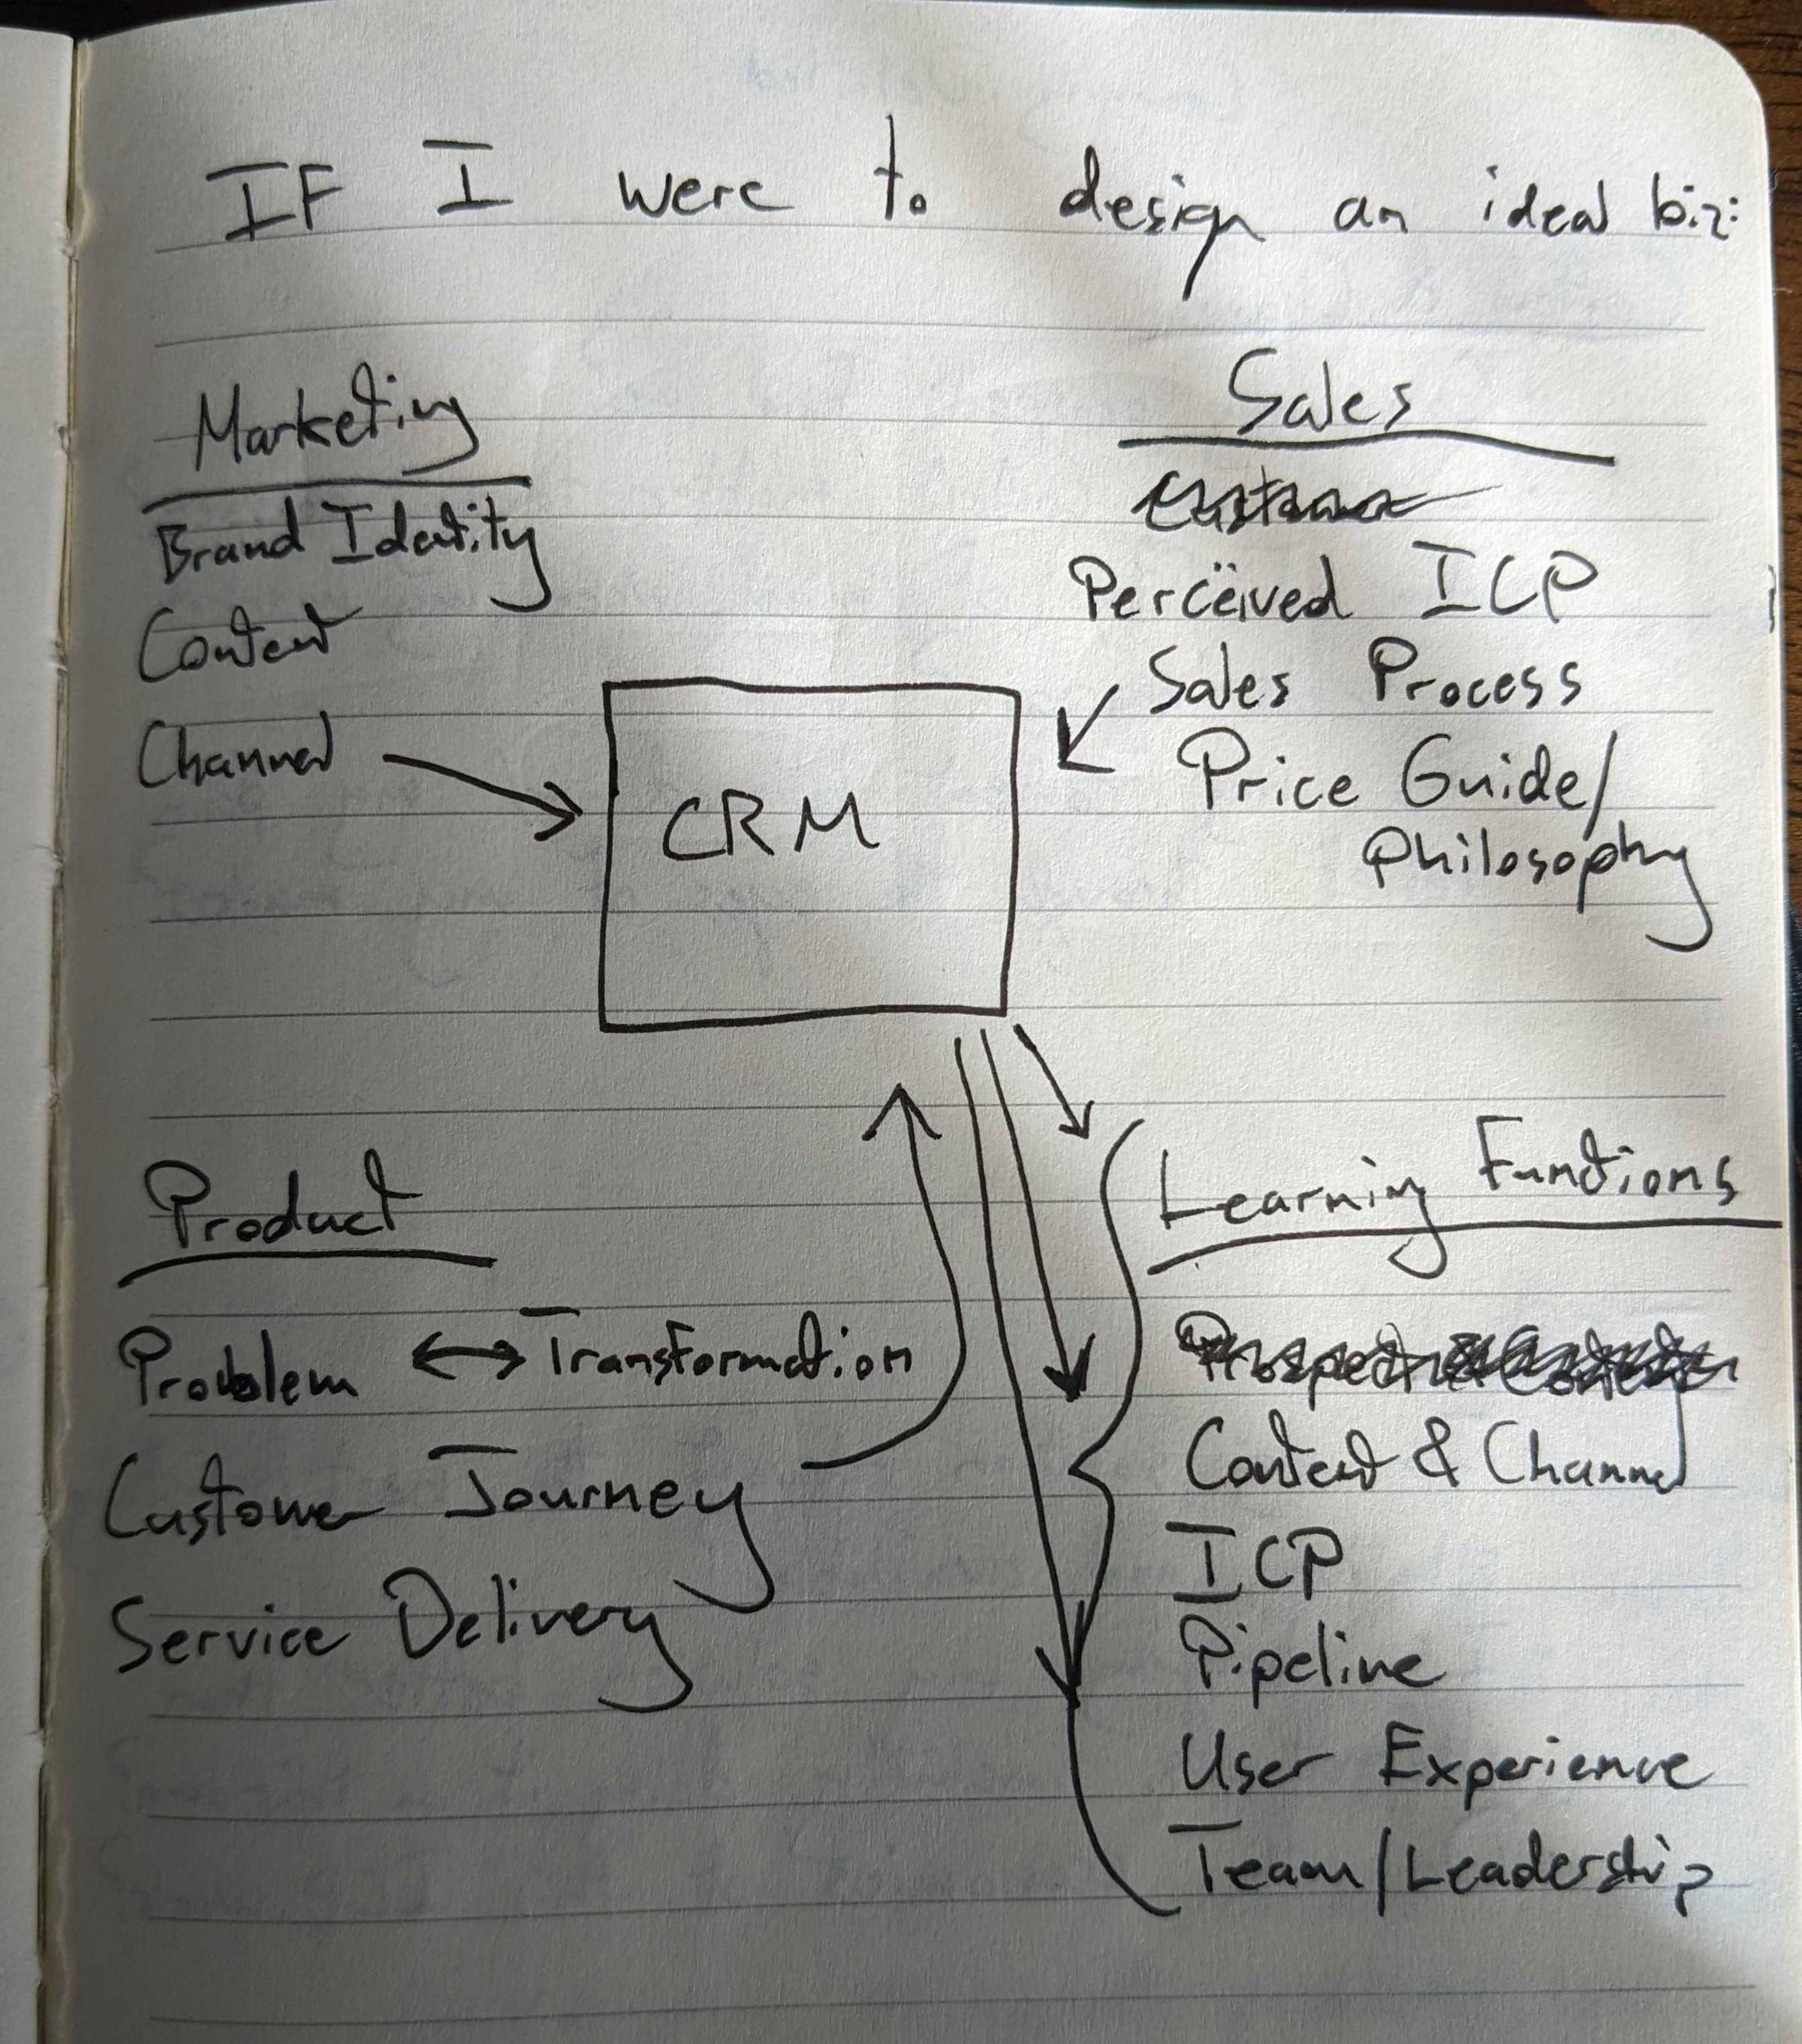 IF I were to design an ideal biz:
Marketing
Brand Identity
Content
Channel
Sales
Perceived ICP
Sales Process
Price Guide/
Philosophy
CRM
Product
Problem ↔ Transformation
Customer Journey
Service Delivery
Learning Functions
Content & Channel
ICP
Pipeline
User Experience
Team/Leadership